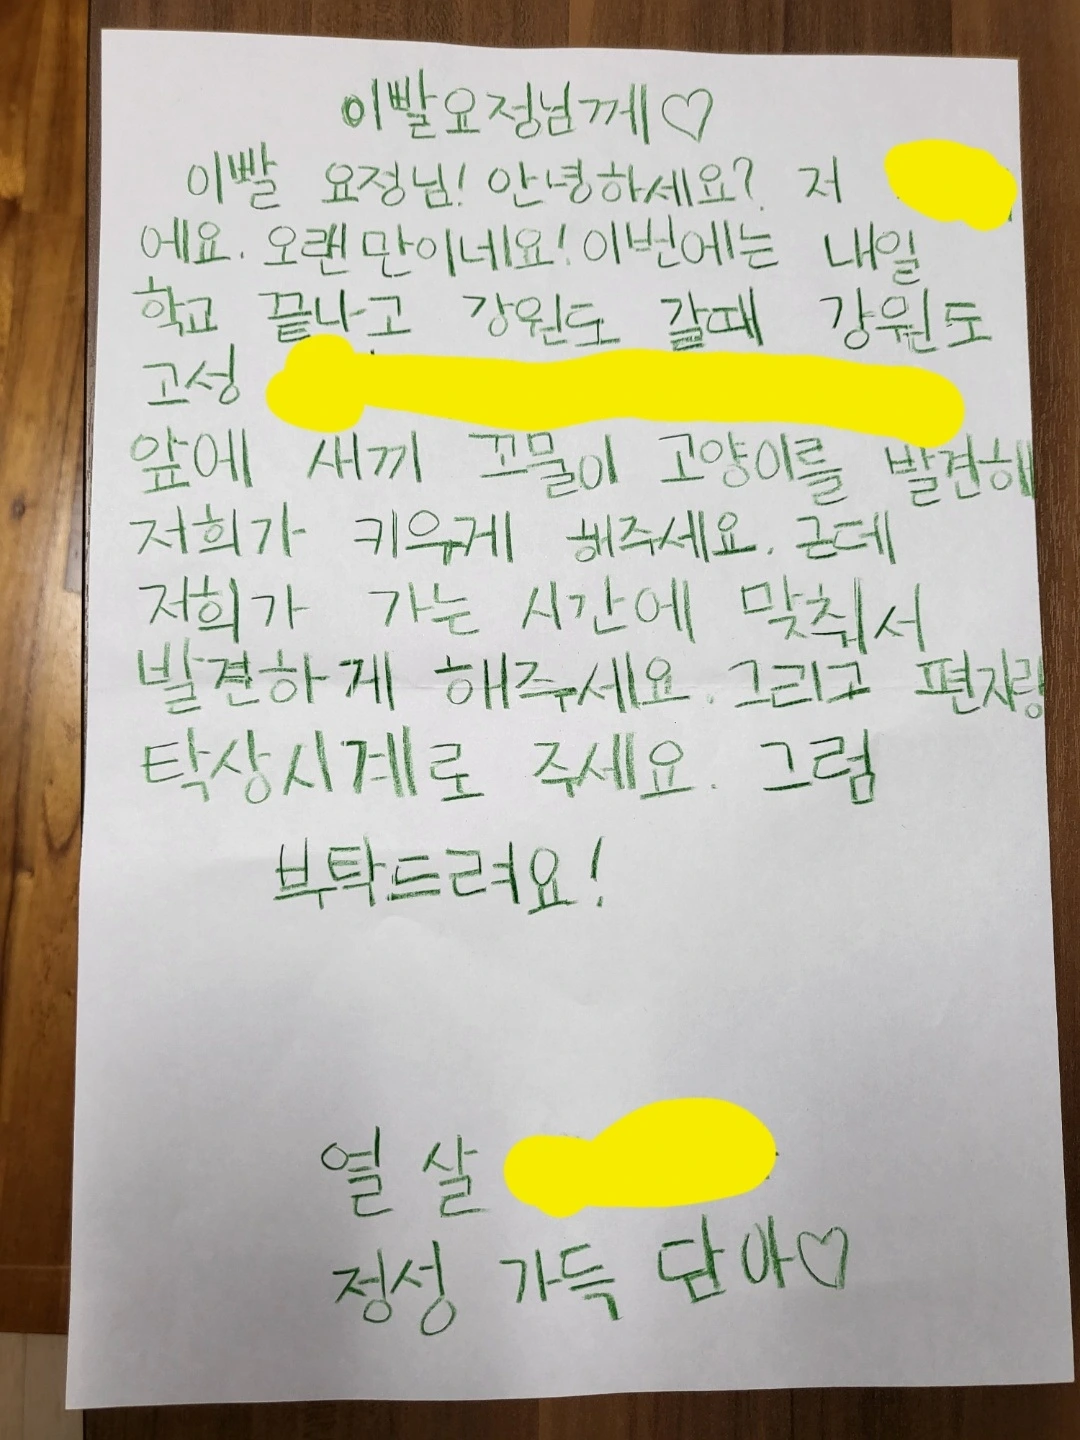 이빨요정님께♡
이빨 요정님! 안녕하세요? 저
에요. 오랜만이네요! 이번에는 내일
학교 끝나고 강원도 갈때 강원도
고성
앞에 새끼 꼬물이 고양이를 발견해
저희가 키우게 해주세요. 근데
저희가 가는 시간에 맞춰서
발견하게 해주세요. 그리고 편지랑
탁상시계로 주세요. 그럼
부탁드려요!
열 살
정성 가득 담아♡